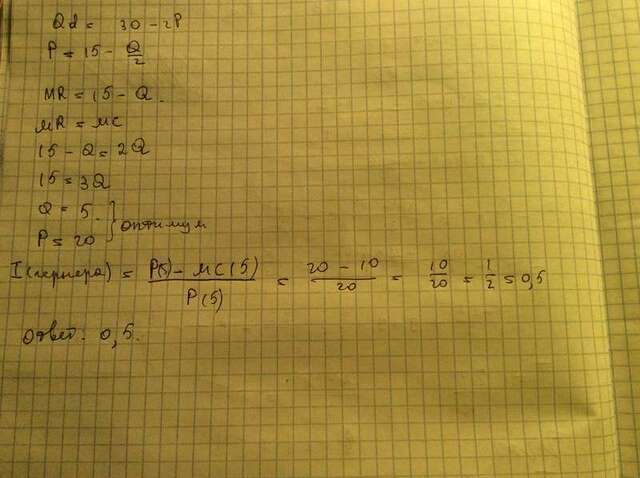 Qd = 30 - 2P
P = 15 - Q/2
MR = 15 - Q.
MR = MC
15 - Q = 2Q
15 = 3Q
Q = 5.
P = 20 } оптимум
I(лернера) = P(5) - MC(5) / P(5) = 20 - 10 / 20 = 10/20 = 1/2 = 0,5
Ответ: 0,5.